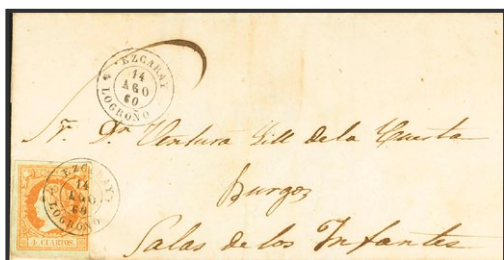 EZCARAY
14
AGO
60
LOGROÑO
Sr. Dn Ventura Gill de la Cuesta
Burgos
Salas de los Infantes
EZCARAY
14
AGO
60
LOGROÑO
4 CUARTOS